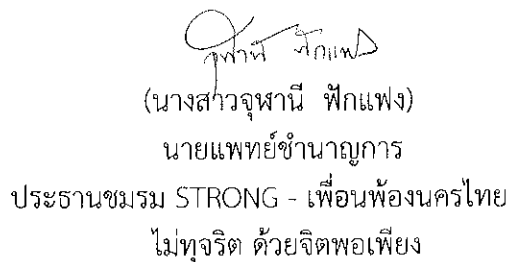 จุฬานี ฟักแฟง
(นางสาวจุฬานี ฟักแฟง)
นายแพทย์ชำนาญการ
ประธานชมรม STRONG - เพื่อนพ้องนครไทย
ไม่ทุจริต ด้วยจิตพอเพียง